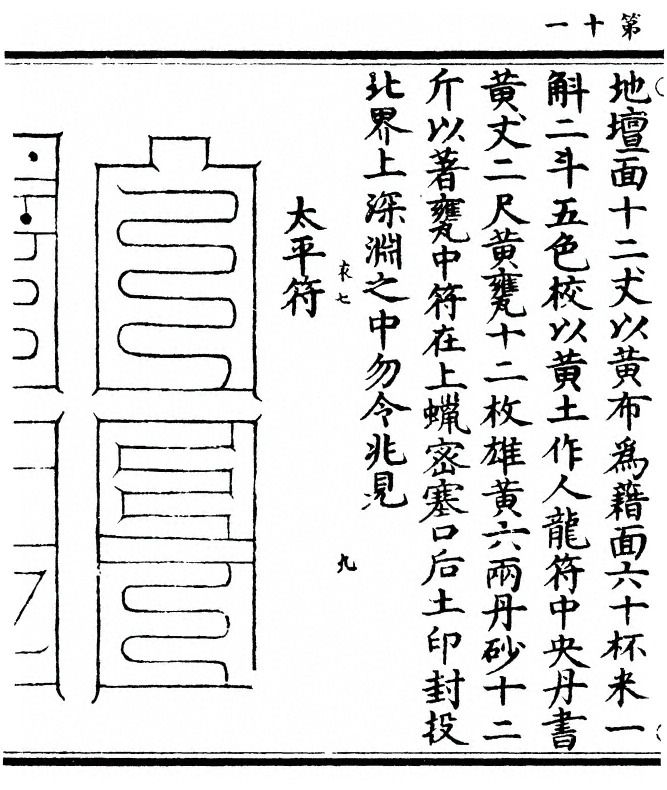 第十一
地壇面十二丈以黃布爲籍面六十杯米一
斛二斗五色校以黃土作人龍符中央丹書
黃丈二尺黃甕十二枚雄黃六兩丹砂十二
斤以著甕中符在上蠟密塞口后土印封投
北界上深淵之中勿令兆見
衣七
九
太平符